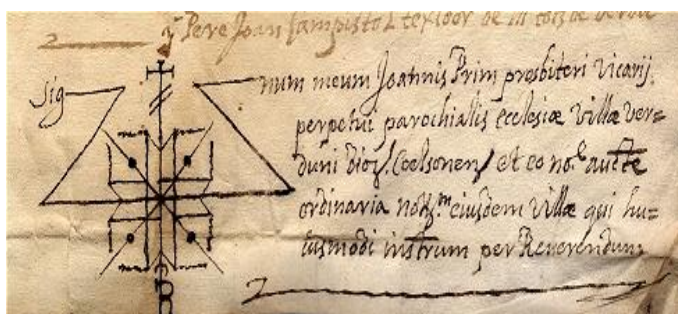 y Pere Joan texidor de
Sig num meum Joannis Prim presbiteri Vicarij
perpetui parochialis ecclesiæ villæ ver=
duni dioz. Coelsonen et eo no.e aucte
ordinaria noty. eiusdem Villæ qui hu=
iusmodi instrum per Reverendum